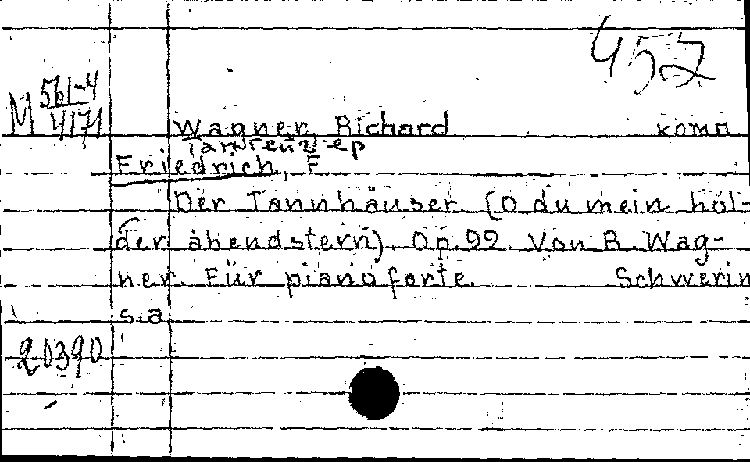 452
М 561-4
4171
Wagner, Richard комп
Tannheuzep
Friedrich, F
Der Tannhäuser (O du mein hol-
der abendstern). Op. 92. Von R. Wag-
ner. Für pianoforte. Schwerin
s.a
20390